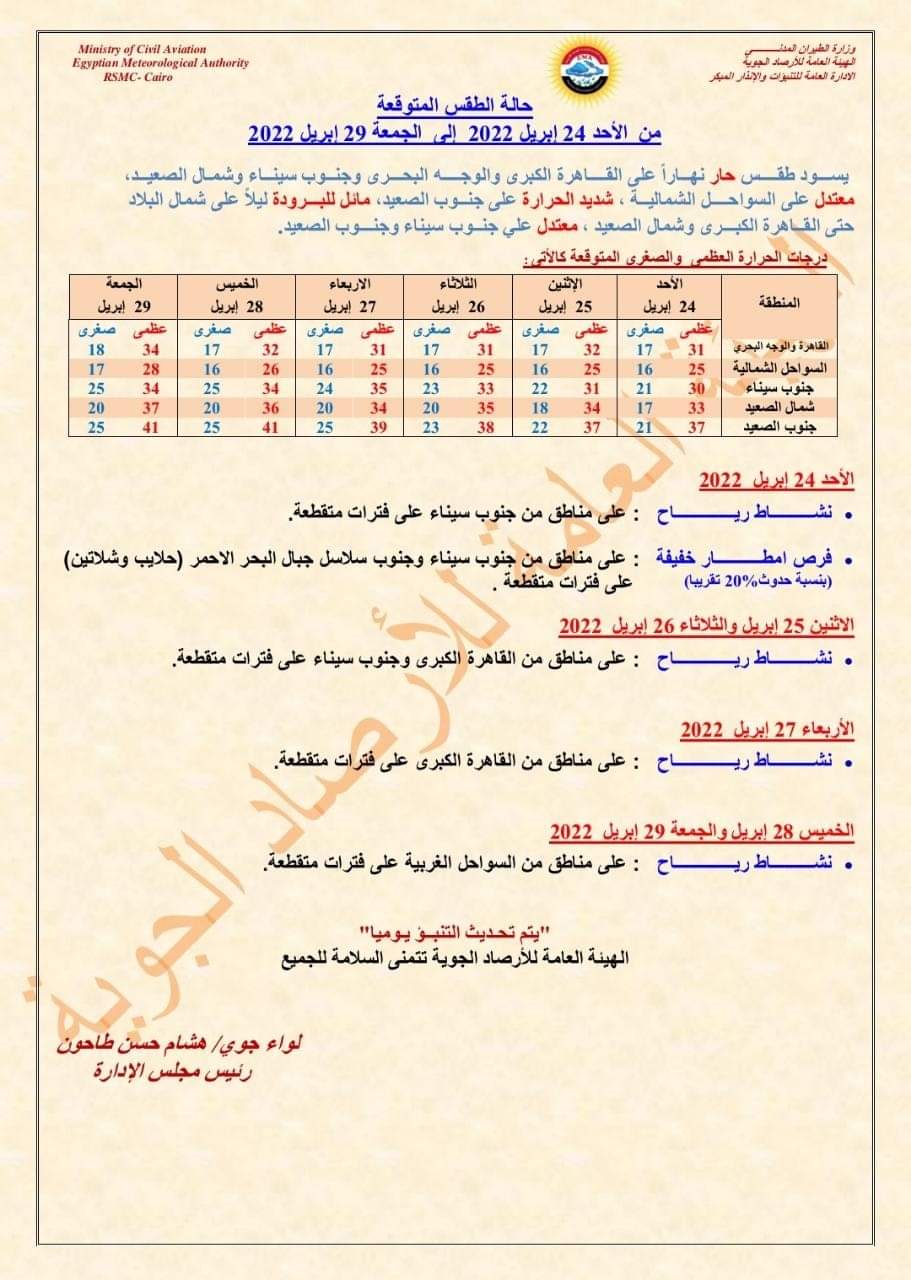 Ministry of Civil Aviation
Egyptian Meteorological Authority
RSMC- Cairo
وزارة الطيران المدنـــي
الهيئة العامة للأرصاد الجوية
الادارة العامة للتنبؤات والإنذار المبكر
حالة الطقس المتوقعة
من الأحد 24 إبريل 2022 إلى الجمعة 29 إبريل 2022
يسود طقس حار نهاراً على القاهرة الكبرى والوجه البحرى وجنوب سيناء وشمال الصعيد،
معتدل على السواحل الشمالية ، شديد الحرارة على جنوب الصعيد، مائل للبرودة ليلاً على شمال البلاد
حتى القاهرة الكبرى وشمال الصعيد ، معتدل علي جنوب سيناء وجنوب الصعيد.
درجات الحرارة العظمى والصغرى المتوقعة كالأتى:
المنطقة الأحد الإثنين الثلاثاء الاربعاء الخميس الجمعة
24 إبريل 25 إبريل 26 إبريل 27 إبريل 28 إبريل 29 إبريل
عظمى صغرى عظمى صغرى عظمى صغرى عظمى صغرى عظمى صغرى عظمى صغرى
القاهرة والوجه البحري 31 17 32 17 31 17 31 17 32 17 34 18
السواحل الشمالية 25 16 25 16 25 16 25 16 26 16 28 17
جنوب سيناء 30 21 31 22 33 23 35 24 34 25 34 25
شمال الصعيد 33 17 34 18 35 20 34 20 36 20 37 20
جنوب الصعيد 37 21 37 22 38 23 39 25 41 25 41 25
الأحد 24 إبريل 2022
• نشاط رياح : على مناطق من جنوب سيناء على فترات متقطعة.
• فرص امطار خفيفة : على مناطق من جنوب سيناء وجنوب سلاسل جبال البحر الاحمر (حلايب وشلاتين)
(بنسبة حدوث20% تقريبا) على فترات متقطعة .
الاثنين 25 إبريل والثلاثاء 26 إبريل 2022
• نشاط رياح : على مناطق من القاهرة الكبرى وجنوب سيناء على فترات متقطعة.
الأربعاء 27 إبريل 2022
• نشاط رياح : على مناطق من القاهرة الكبرى على فترات متقطعة.
الخميس 28 إبريل والجمعة 29 إبريل 2022
• نشاط رياح : على مناطق من السواحل الغربية على فترات متقطعة.
"يتم تحديث التنبؤ يوميا"
الهيئة العامة للأرصاد الجوية تتمنى السلامة للجميع
لواء جوي/ هشام حسن طاحون
رئيس مجلس الإدارة
الهيئة العامة للأرصاد الجوية